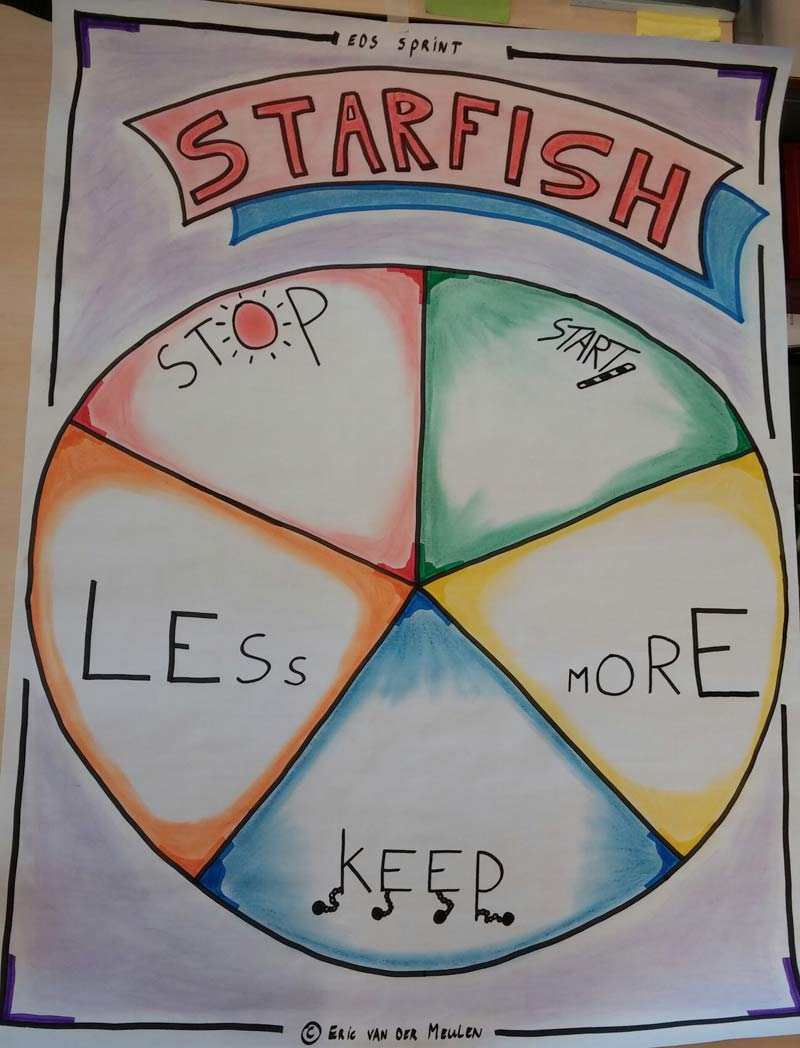 EOS SPRiNT
STARFISH
STOP
START
LESS
MORE
KEEP
© ERic VAN DER MEULEN